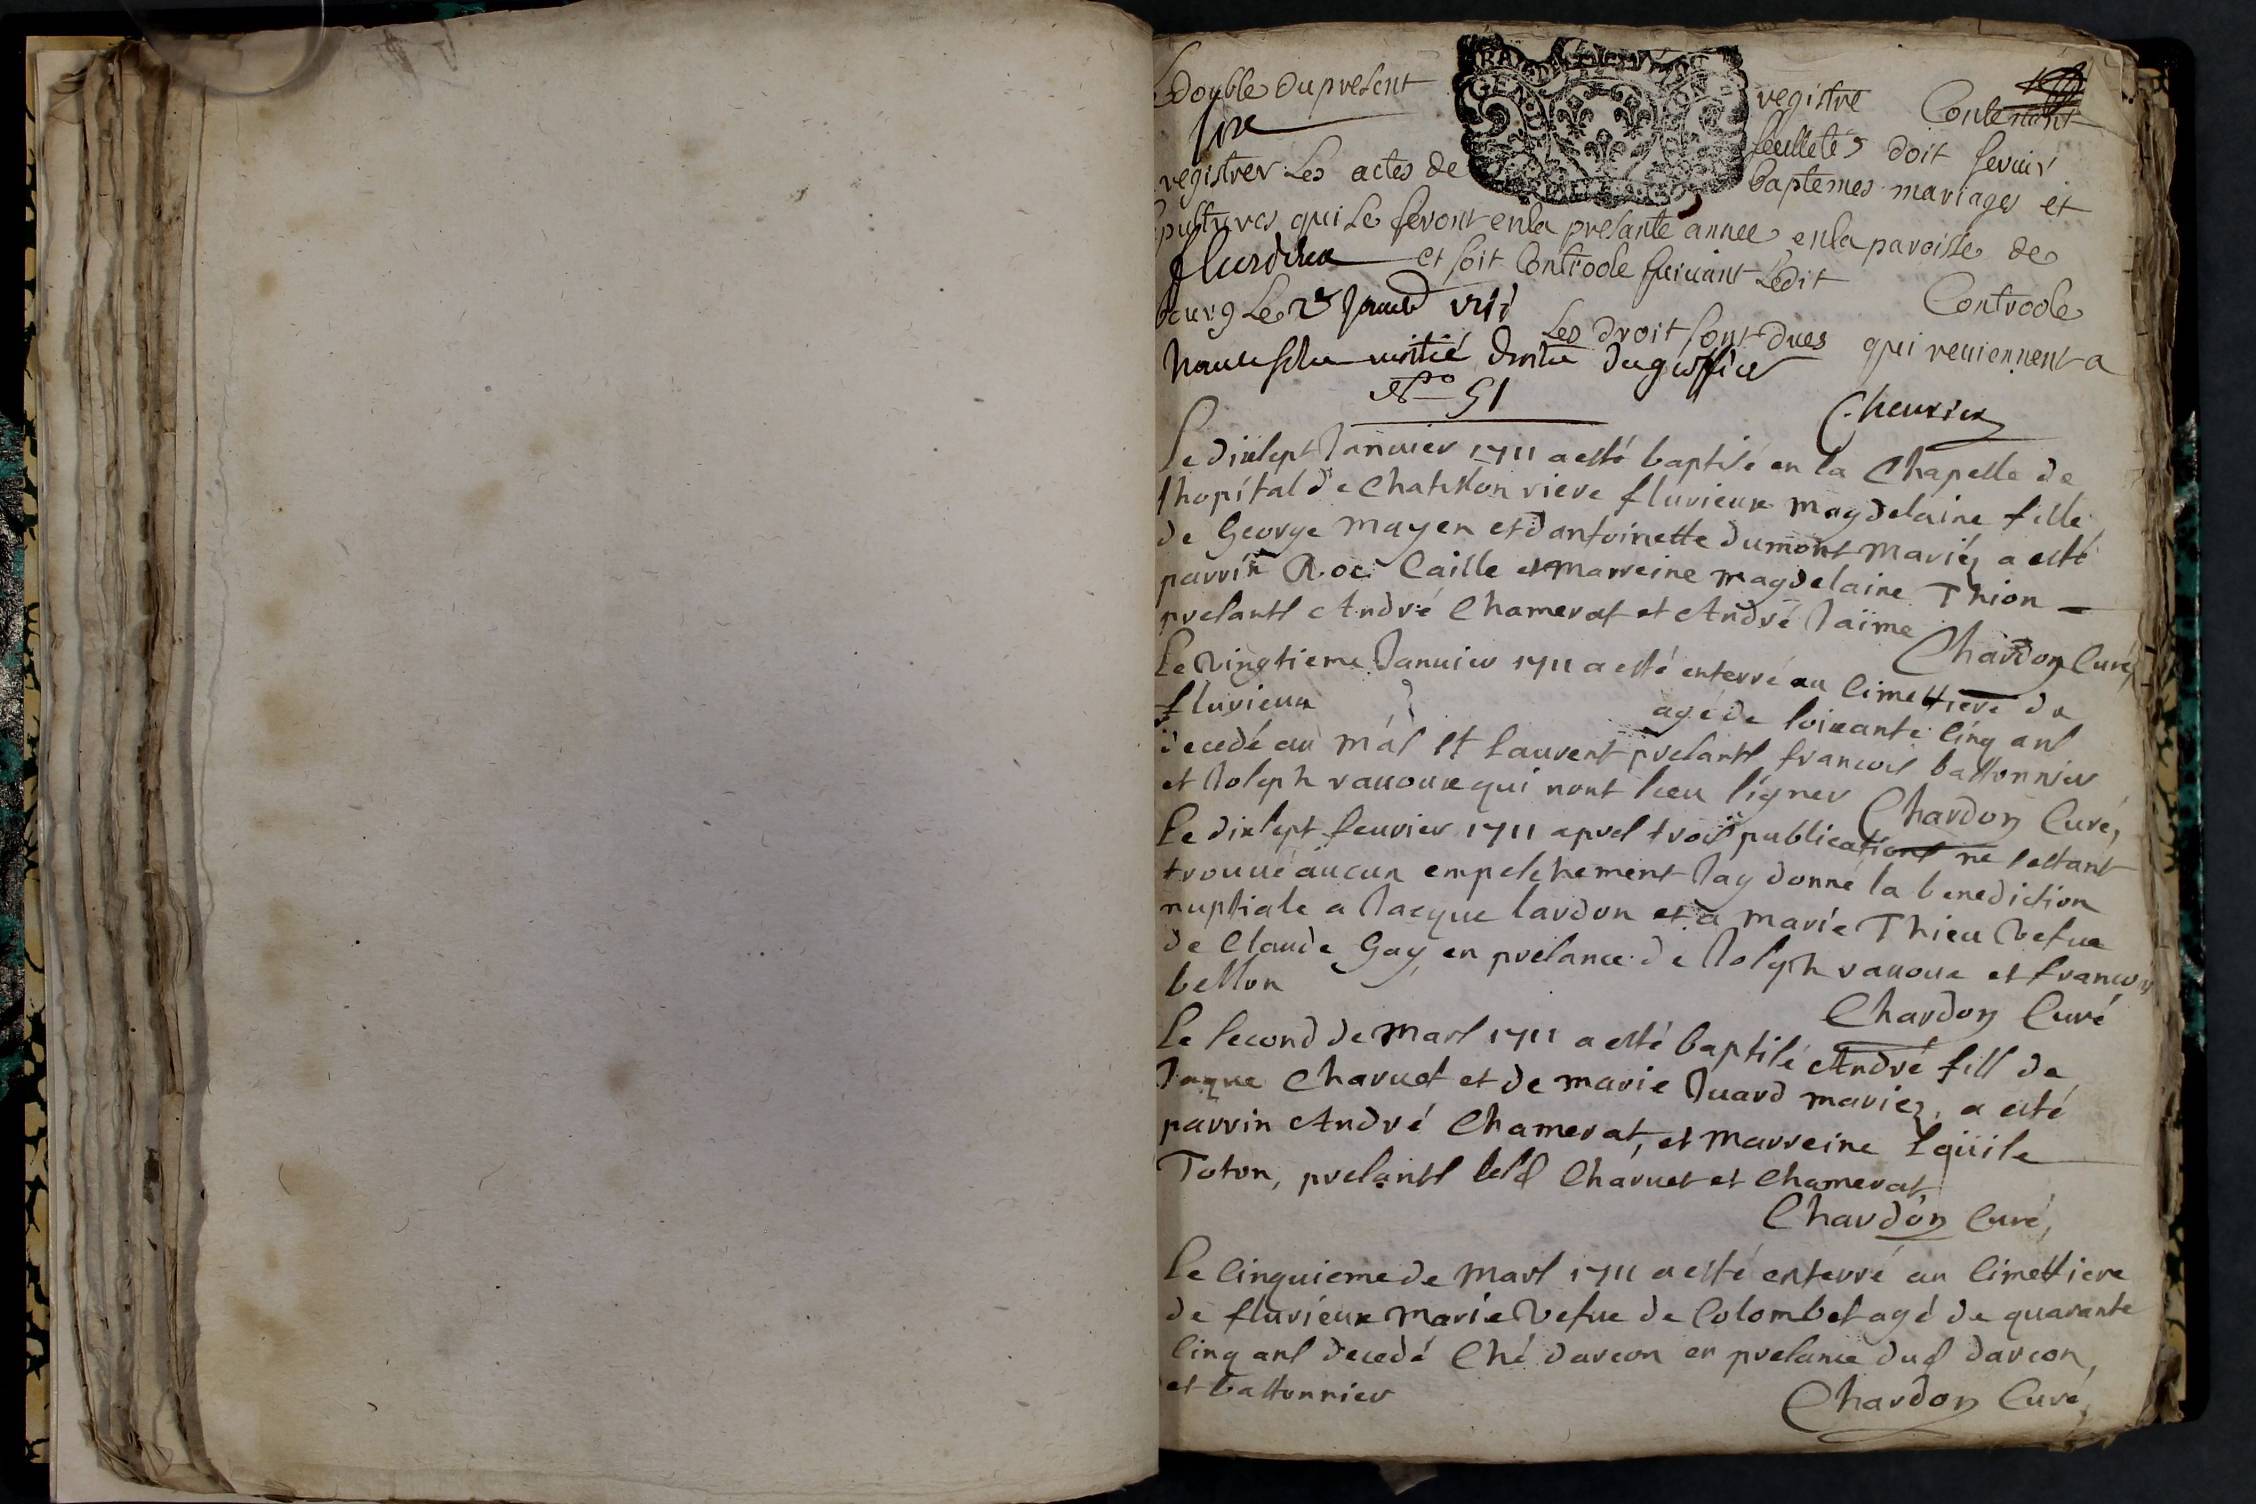 Le double du present registre Contenant
six feuilletes doit servir
registrer Les actes de baptemes mariages et
sepultures qui se feront en la presante annee en la paroisse de
flurieux et soit Controole suivant Ledit Controole
bourg Le 2e Janvier 1711
Les droit sont dues qui reviennent a
neuf sols moitié droits du greffier
No 51
Cheurier
Le dixsept Janvier 1711 a esté baptisé en la Chapelle de
lhopital de Chatillon riere flurieux magdelaine fille
de George mayer et dantoinette dumont mariéz a esté
parrin Roc Caille et marreine magdelaine Thion
presants André Chamerat et André Jaime
Chardon Curé,
Le vingtieme Janvier 1711 a esté enterré au Cimettiere de
flurieux agé de soixante cinq ans
decedé au mas st Laurent presants francois bastonnier
et Joseph rauoux qui nont sceu signer Chardon Curé,
Le dixsept feurier 1711 apres trois publications ne sestant
trouué aucun empeschement Jay donné la benediction
nuptiale a Jacque lardon et a marie Thieu Vefue
de Claude Gay, en presance de Joseph rauoux et francois
bellon
Chardon Curé
Le second de mars 1711 a esté baptisé André fils de
Jaque Charuet et de marie Juard mariez, a esté
parrin André Chamerat, et marreine
Toton, presants lesd Charuet et Chamerat,
Chardon Curé,
Le Cinquieme de mars 1711 a esté enterré au Cimettiere
de flurieux marie Vefue de Colombet agé de quarante
Cinq ans decedé Ché darcon en presance dud darcon,
et bastonnier Chardon Curé,